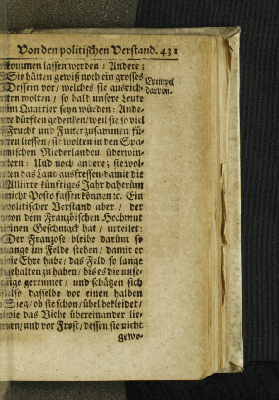 Von den politischen Verstand. 431
kommen lassen werden: Andere;
Sie hätten gewiß noch ein grosses
Dessein vor/ welches sie ausrich-
ten wolten/ so bald unsere Leute
im Quartier seyn würden: Ande-
re dürfften gedencken/ weil sie so viel
Frucht und Futter zusammen füh-
ren liessen/ sie wolten in den Spa-
nischen Niederlanden überwin-
tern: Und noch andere; sie wol-
ten das Land ausfressen/ damit die
Alliirte künfftiges Jahr daherum
nicht Posto fassen können ꝛc. Ein
politischer Verstand aber/ der
von dem Französischen Hochmut
einen Geschmack hat/ urteilet:
Der Franzose bleibe darüm so
lange im Felde stehen/ damit er
die Ehre habe/ das Feld so lange
gehalten zu haben/ bis es die unse-
rige geraumet/ und schätzen sich
also dasselbe vor einen halben
Sieg/ ob sie schon/ übel bekleidet/
wie das Viehe übereinander lie-
gen/ und vor Frost/ dessen sie nicht
gewo-
Exempel
davon.